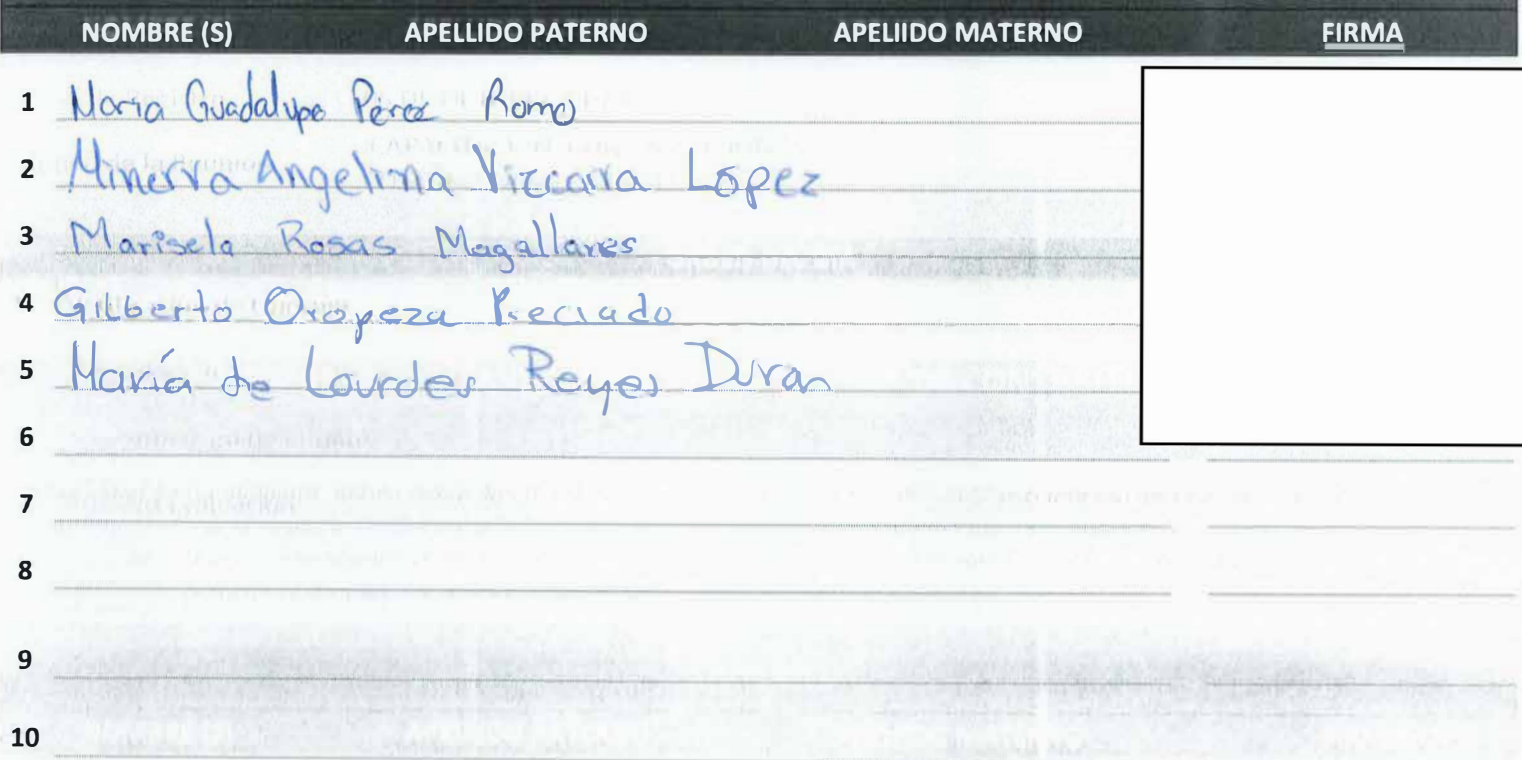 NOMBRE (S) APELLIDO PATERNO APELIIDO MATERNO FIRMA
1 Maria Guadalupe Pérez Romo
2 Minerva Angelina Vizcarra López
3 Marisela Rosas Magallanes
4 Gilberto Oropeza Preciado
5 María de Lourdes Reyes Duran
6
7
8
9
10